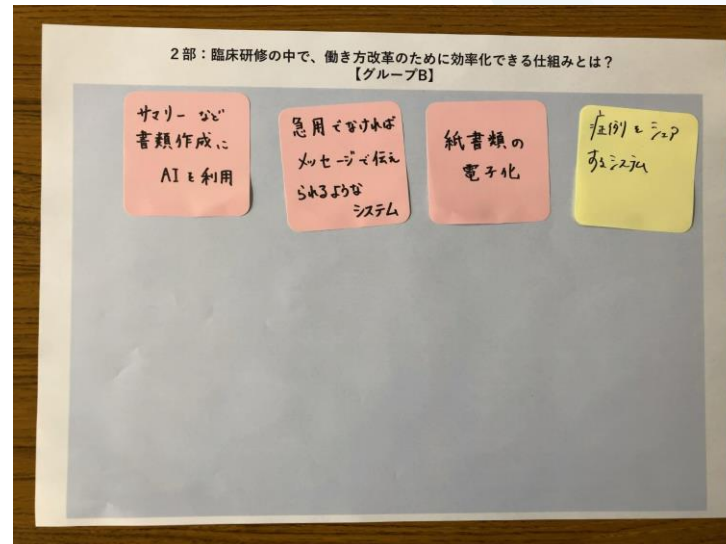 2部：臨床研修の中で、働き方改革のために効率化できる仕組みとは？
【グループB】
サマリーなど
書類作成に
AIを利用
急用でなければ
メッセージで伝え
られるような
システム
紙書類の
電子化
症例をシェア
するシステム